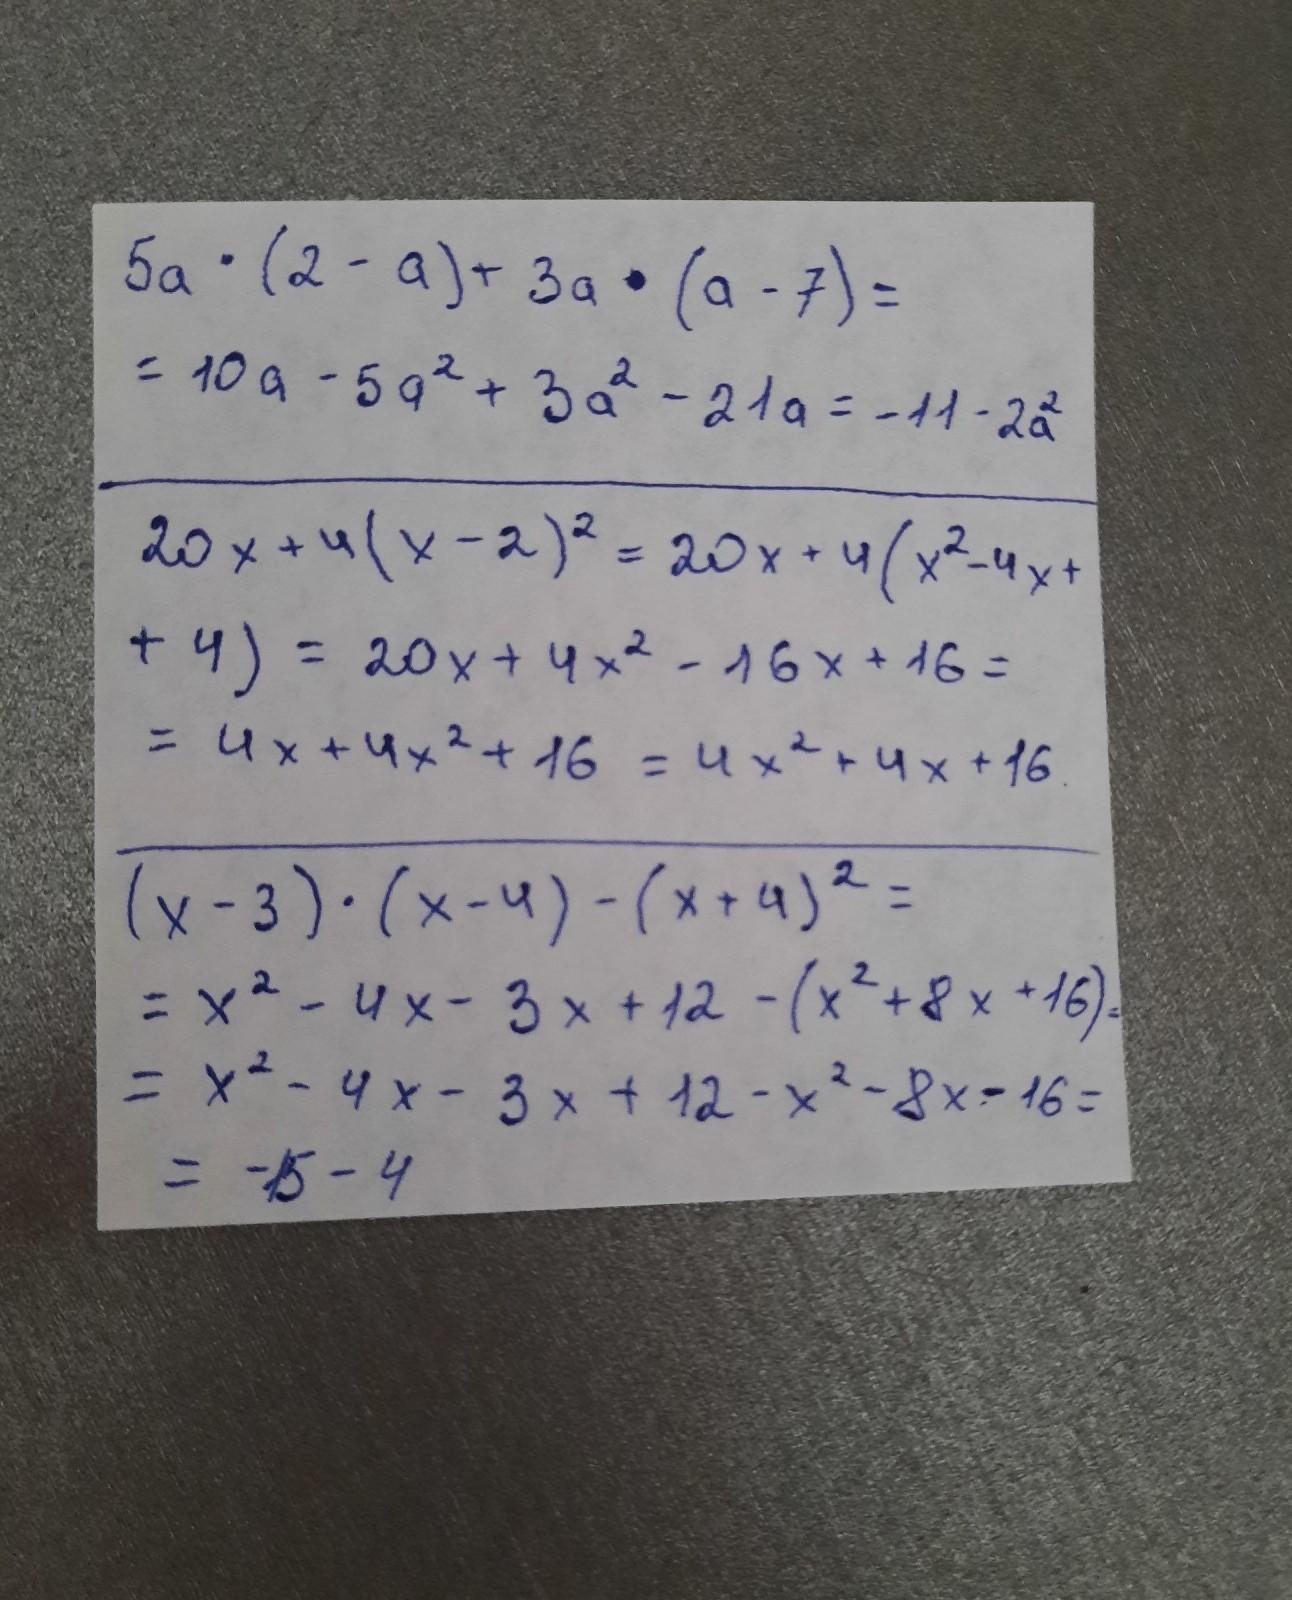 5a · (2 - a) + 3a · (a - 7) =
= 10a - 5a² + 3a² - 21a = -11 - 2a²
20x + 4(x - 2)² = 20x + 4(x² - 4x +
+ 4) = 20x + 4x² - 16x + 16 =
= 4x + 4x² + 16 = 4x² + 4x + 16.
(x - 3) · (x - 4) - (x + 4)² =
= x² - 4x - 3x + 12 - (x² + 8x + 16) =
= x² - 4x - 3x + 12 - x² - 8x - 16 =
= -15 - 4